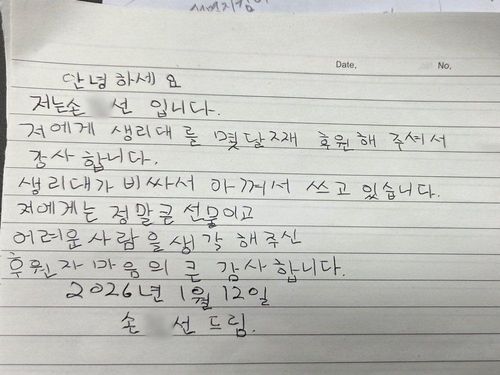 Date.
No.
안녕하세요
저는손 선 입니다.
저에게 생리대를 몇달째 후원해 주셔서
감사 합니다.
생리대가 비싸서 아껴서 쓰고 있습니다.
저에게는 정말큰 선물이고
어려운사람을생각 해주신
후원자마음의 큰 감사합니다.
2026년 1월 12일
손 선드림.